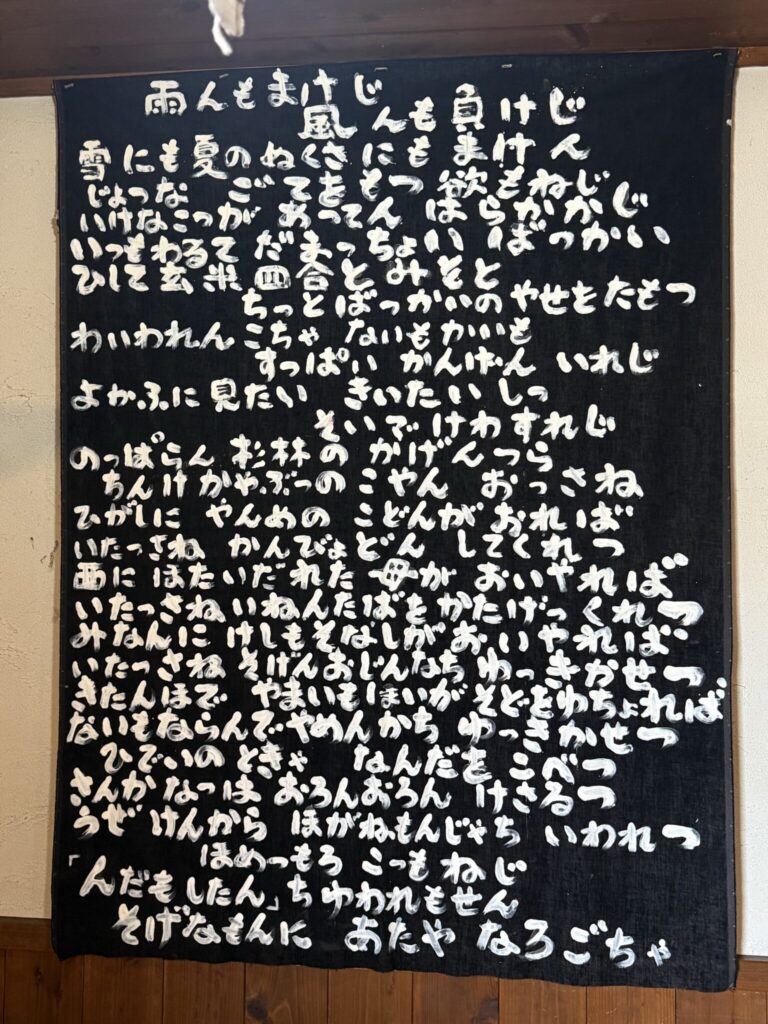 雨んもまけじ
風んも負けじ
雪にも夏のぬくさにもまけん
じょつな ごてをもつ欲もねじ
いけなこつが あってん はらかかじ
いっもわるて だまっちょい ばっかい
ひして玄米四合とみそと
ちっとばっかいのやせをたもつ
わいわれんこちゃ ないもかいも
すっぱい かんげん いれじ
よか.ふに見たい きいたいしっ
そいでけわすれじ
のっぱらん 杉林のかげんつら
ちんけかやぶっのこやん おっさね
ひがしに やんめの こどんがおれば
いたっさね かんびょどん してくれつ
西にほたいだれた 母が おいやれば
いたっさねいねんたばをかたげっくれつ
みなんにけしもそなしがおいやれば
いたっさね そげんおじんなち ゆっきかせつ
きたんほで やまいもほいが そどをゆちょれば
ないもならんでやめんかち ゆっきかせつ
ひでいのときゃ なんだをこべつ
さんかなつは おろんおろん けさるつ
うぜけんから ほがねもんじゃち いわれつ
ほめっもろこつもねじ
「んだもしたん」ちゆわれもせん
そげなもんに あたやなろごちゃ